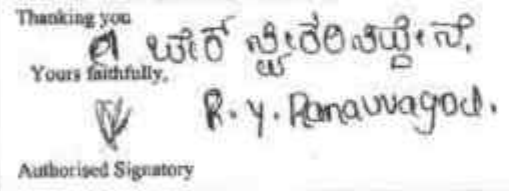 Thanking you
ಈ ಚೆಕ್ ಸ್ವೀಕರಿಸಿದ್ದೇನೆ.
Yours faithfully,
R. Y. Ramavvagol.
Authorised Signatory